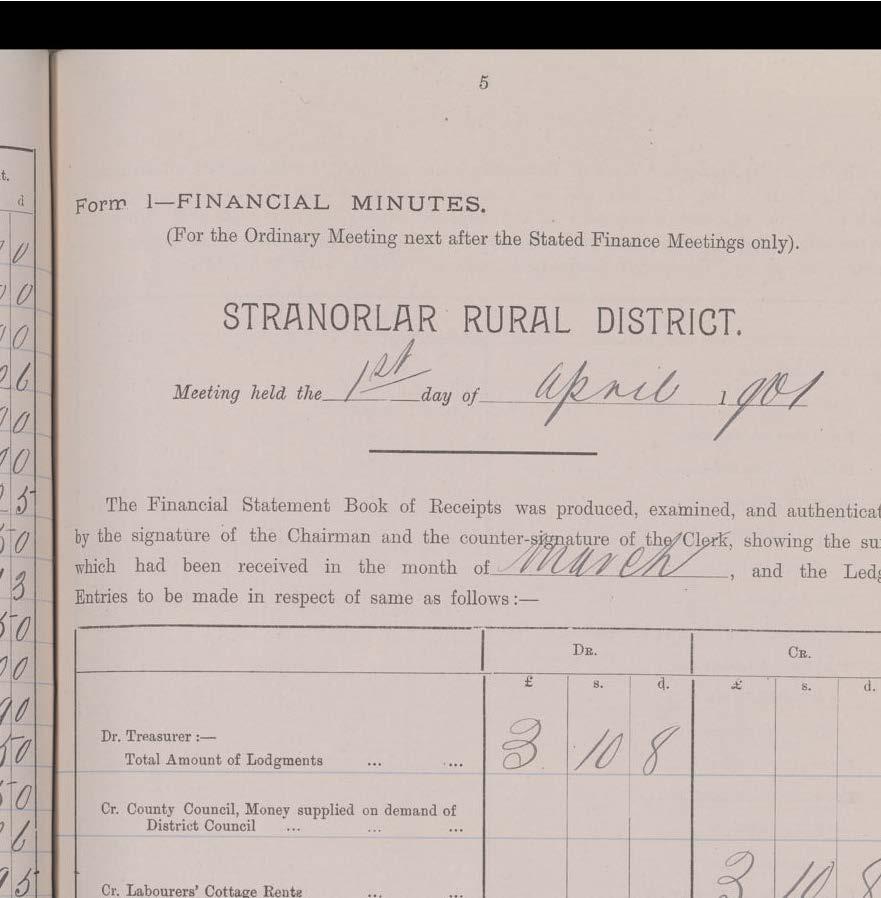 5
t.
d
Form 1—FINANCIAL MINUTES.
(For the Ordinary Meeting next after the Stated Finance Meetings only).
STRANORLAR RURAL DISTRICT.
Meeting held the 1st day of April 1901
The Financial Statement Book of Receipts was produced, examined, and authenticat
by the signature of the Chairman and the counter-signature of the Clerk, showing the su
which had been received in the month of March, and the Ledg
Entries to be made in respect of same as follows:—
DR. CR.
£ s. d. £ s. d.
Dr. Treasurer :—
Total Amount of Lodgments ... ... 3 10 8
Cr. County Council, Money supplied on demand of
District Council ... ... ...
Cr. Labourers' Cottage Rents ... ... 3 10 8